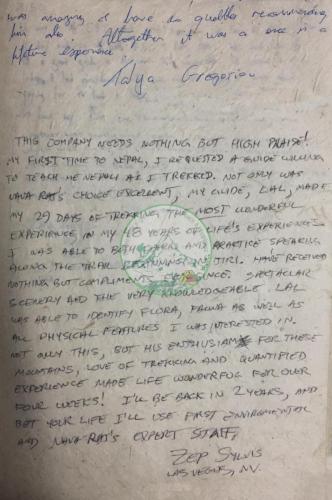 was amazing, I have no qualms recommending
him also. Altogether it was a once in a
lifetime experience.
Talya
THIS COMPANY NEEDS NOTHING BUT HIGH PRAISE!
MY FIRST TIME TO NEPAL, I REQUESTED A GUIDE WILLING
TO TEACH ME NEPALI AS I TREKKED. NOT ONLY WAS
NAVA RAJ'S CHOICE EXCELLENT, MY GUIDE, LAL, MADE
MY 29 DAYS OF TREKKING THE MOST WONDERFUL
EXPERIENCE IN MY 48 YEARS OF LIFE'S EXPERIENCES
I WAS ABLE TO BOTH LEARN AND PRACTICE SPEAKING
ALONG THE TRAIL BEGINNING IN JIRI. HAVE RECEIVED
NOTHING BUT COMPLIMENTS SINCE. SPECTACULAR
SCENERY AND THE VERY KNOWLEDGEABLE LAL
WAS ABLE TO IDENTIFY FLORA, FAUNA AS WELL AS
ALL PHYSICAL FEATURES I WAS INTERESTED IN.
NOT ONLY THIS, BUT HIS ENTHUSIASM FOR THESE
MOUNTAINS, LOVE OF TREKKING AND QUANTIFIED
EXPERIENCE MADE LIFE WONDERFUL FOR OUR
FOUR WEEKS! I'LL BE BACK IN 2 YEARS, AND
BET YOUR LIFE I'LL USE FIRST ENVIRONMENTAL
AND NAVA RAJ'S EXPERT STAFF.
ZEP SYLVIS
LAS VEGAS, NV.